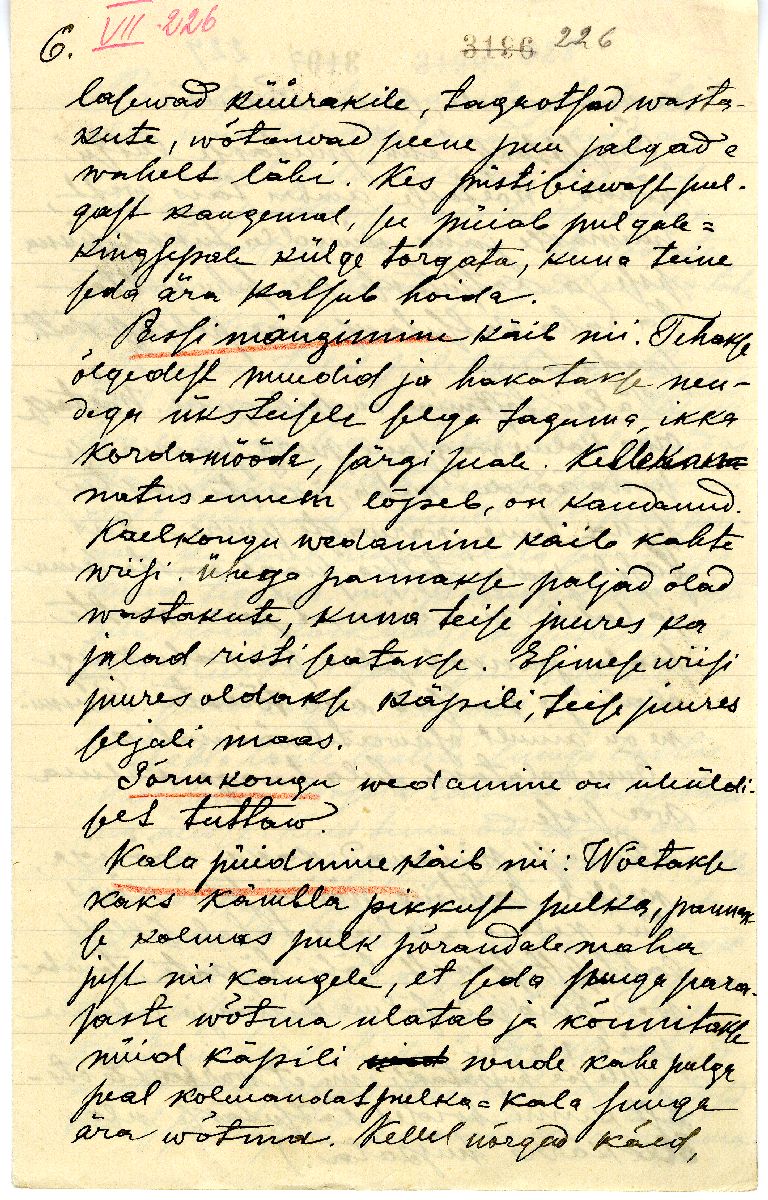 6. VII 226
3196 226
lasewad küürakile, tagaotsad wasta-
kute, wõtawad peene puu jalgade
wahelt läbi. Kes püstiseiswast pul-
gast kaugemal, se püiab pulgale=
kingsepale külge torgata, kuna teine
seda ära katsub hoida.
Pussi mängimine käib nii. Tehakse
õlgedest nuudid ja hakatakse nen-
dega üksteisele selga taguma, ikka
kordamööda, järgi peale. Kelle kan=
natus ennem lõpeb, on kaotanud.
Kaelkougu wedamine käib kahte
wiisi. Ühega pannakse paljad õlad
wastakute, kuna teise juures ka
jalad risti seatakse. Esimese wiisi
juures oldakse käpili, teise juures
seljali maas.
Sõrmkougu wedamine on üleüldi-
selt tuttaw.
Kala püidmine käib nii: Wõetakse
kaks kämbla pikkust pulka, pannak-
se kolmas pulk põrandale maha
just nii kaugele, et seda suuga para-
jaste wõtma ulatab ja kõnnitakse
nüid käpili nende kahe pulga
peal kolmandat pulka = kala suuga
ära wõtma. Kellel nõrgad käed,